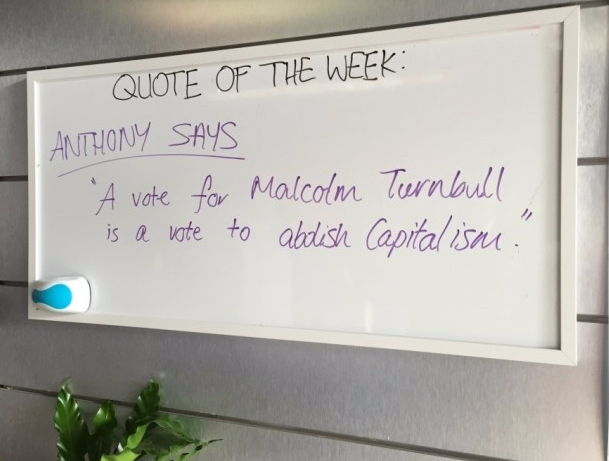 QUOTE OF THE WEEK:
ANTHONY SAYS
"A vote for Malcolm Turnbull
is a vote to abolish Capitalism."